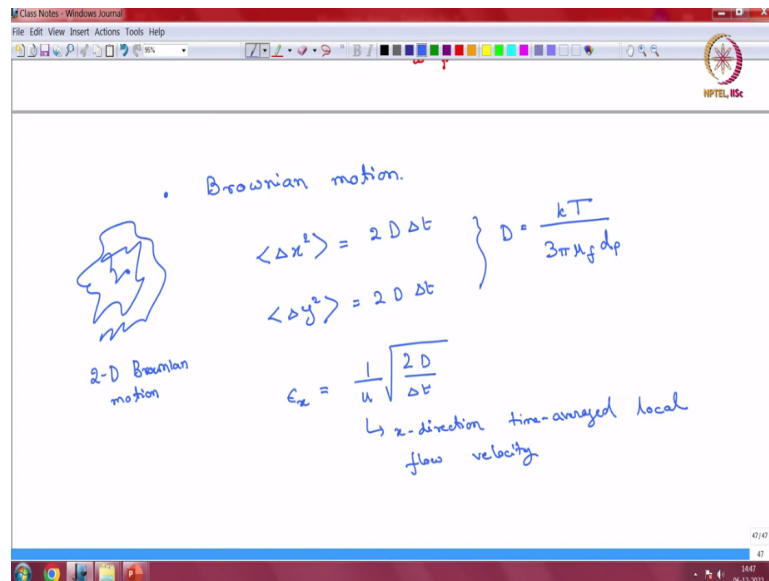 Class Notes - Windows Journal
File Edit View Insert Actions Tools Help
95%
NPTEL, IISc
• Brownian motion.
<Δx²> = 2 D Δt
<Δy²> = 2 D Δt
} D = kT / 3π μf dp
2-D Brownian
motion
εx = 1/u √(2D/Δt)
↳ x-direction time-averaged local
flow velocity
47/47
47
14:47
06-12-2022